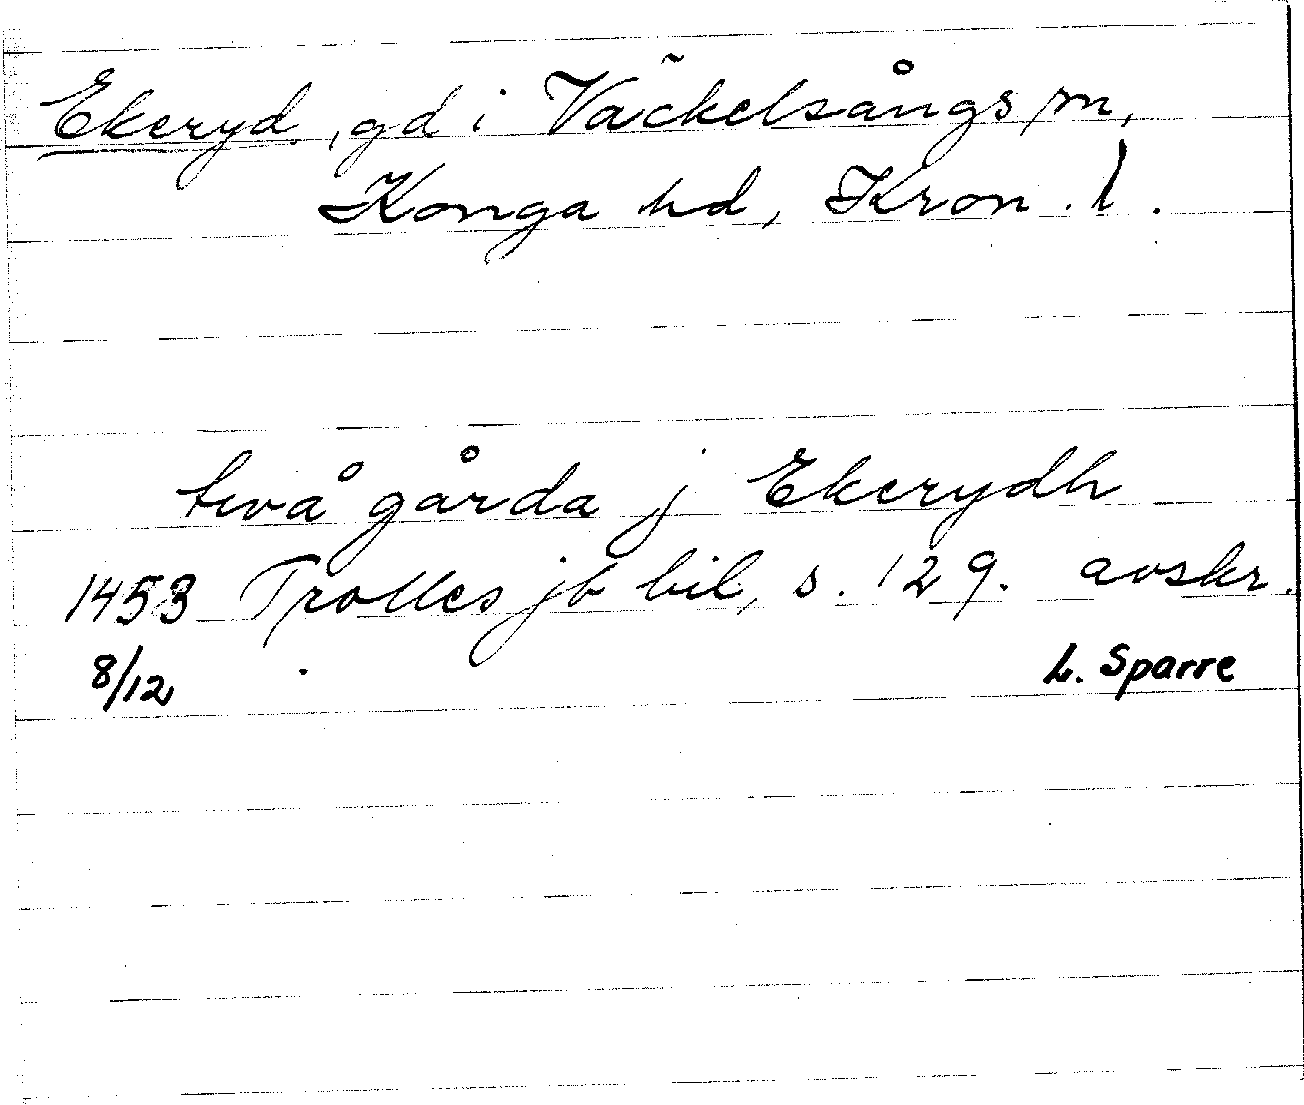 Ekeryd, gd i Väckelsångs sn,
Konga hd, Kron. l.
twå gårda j Ekerydh
1453 Trolles jb bil, s. 129. avskr.
8/12 L. Sparre